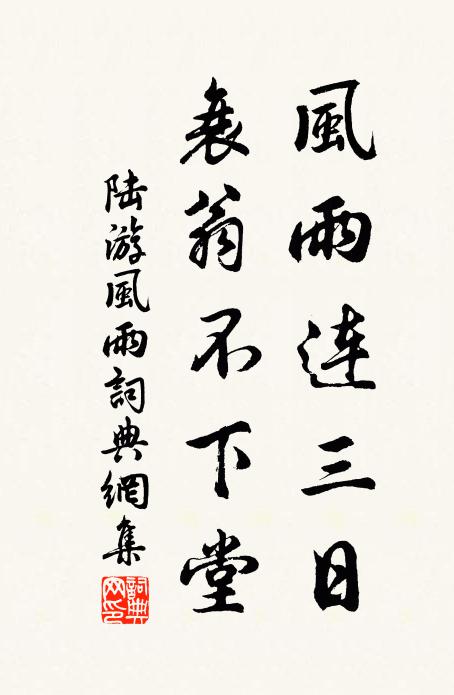 風雨連三日
衰翁不下堂
陆游風雨詞典網集
詞典网印